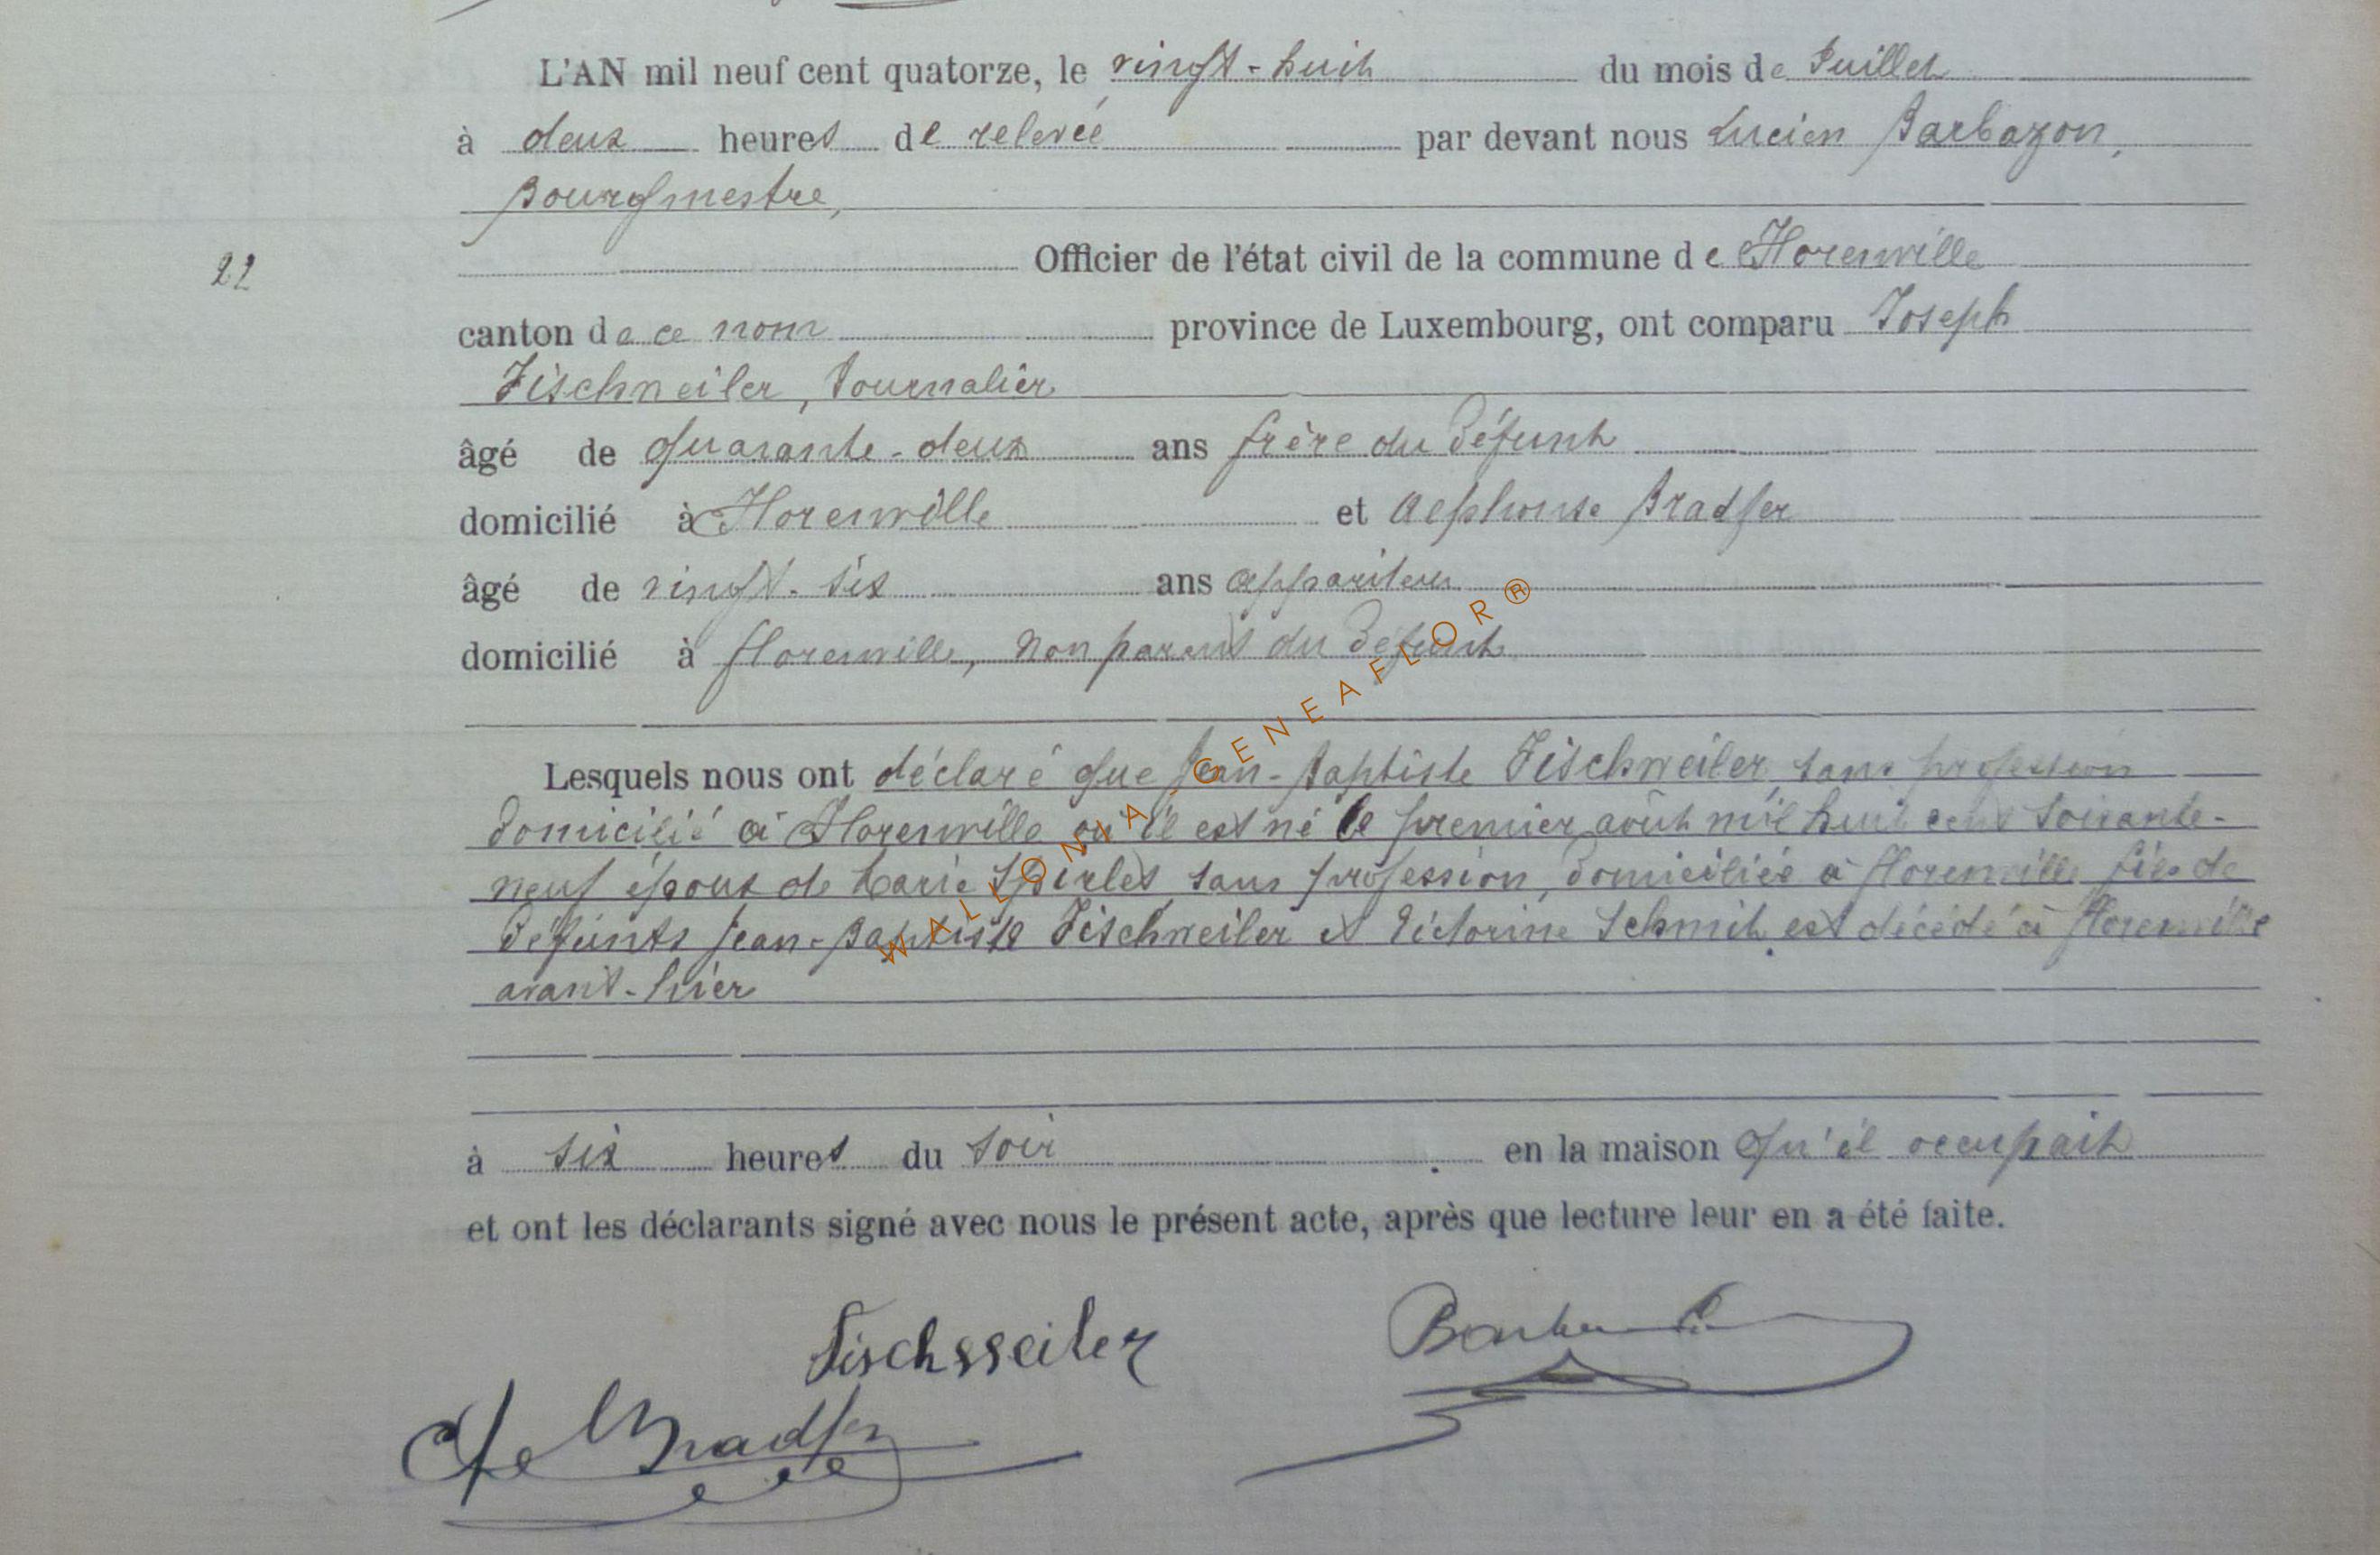 L'AN mil neuf cent quatorze, le vingt-huit du mois de Juillet
à deux heures de relevée par devant nous Lucien Barbazon,
Bourgmestre,
22
Officier de l'état civil de la commune de Florenville
canton de ce nom province de Luxembourg, ont comparu Joseph
Fischweiler, Journalier
âgé de quarante-deux ans frère du défunt
domicilié à Florenville et Alphonse Bradfer
âgé de vingt-six ans appariteur
domicilié à Florenville, non parent du défunt
Lesquels nous ont déclaré que Jean-Baptiste Fischweiler, sans profession
domicilié à Florenville où il est né le premier août mil huit cent soixante-
neuf époux de Marie sans profession, domiciliée à Florenville fils de
défunts Jean-Baptiste Fischweiler et Victorine Schmit est décédé à Florenville
avant-hier
à six heures du soir en la maison qu'il occupait
et ont les déclarants signé avec nous le présent acte, après que lecture leur en a été faite.
Fischsseiler
Bradfer
WALLONIA - GENEAFLOR ®